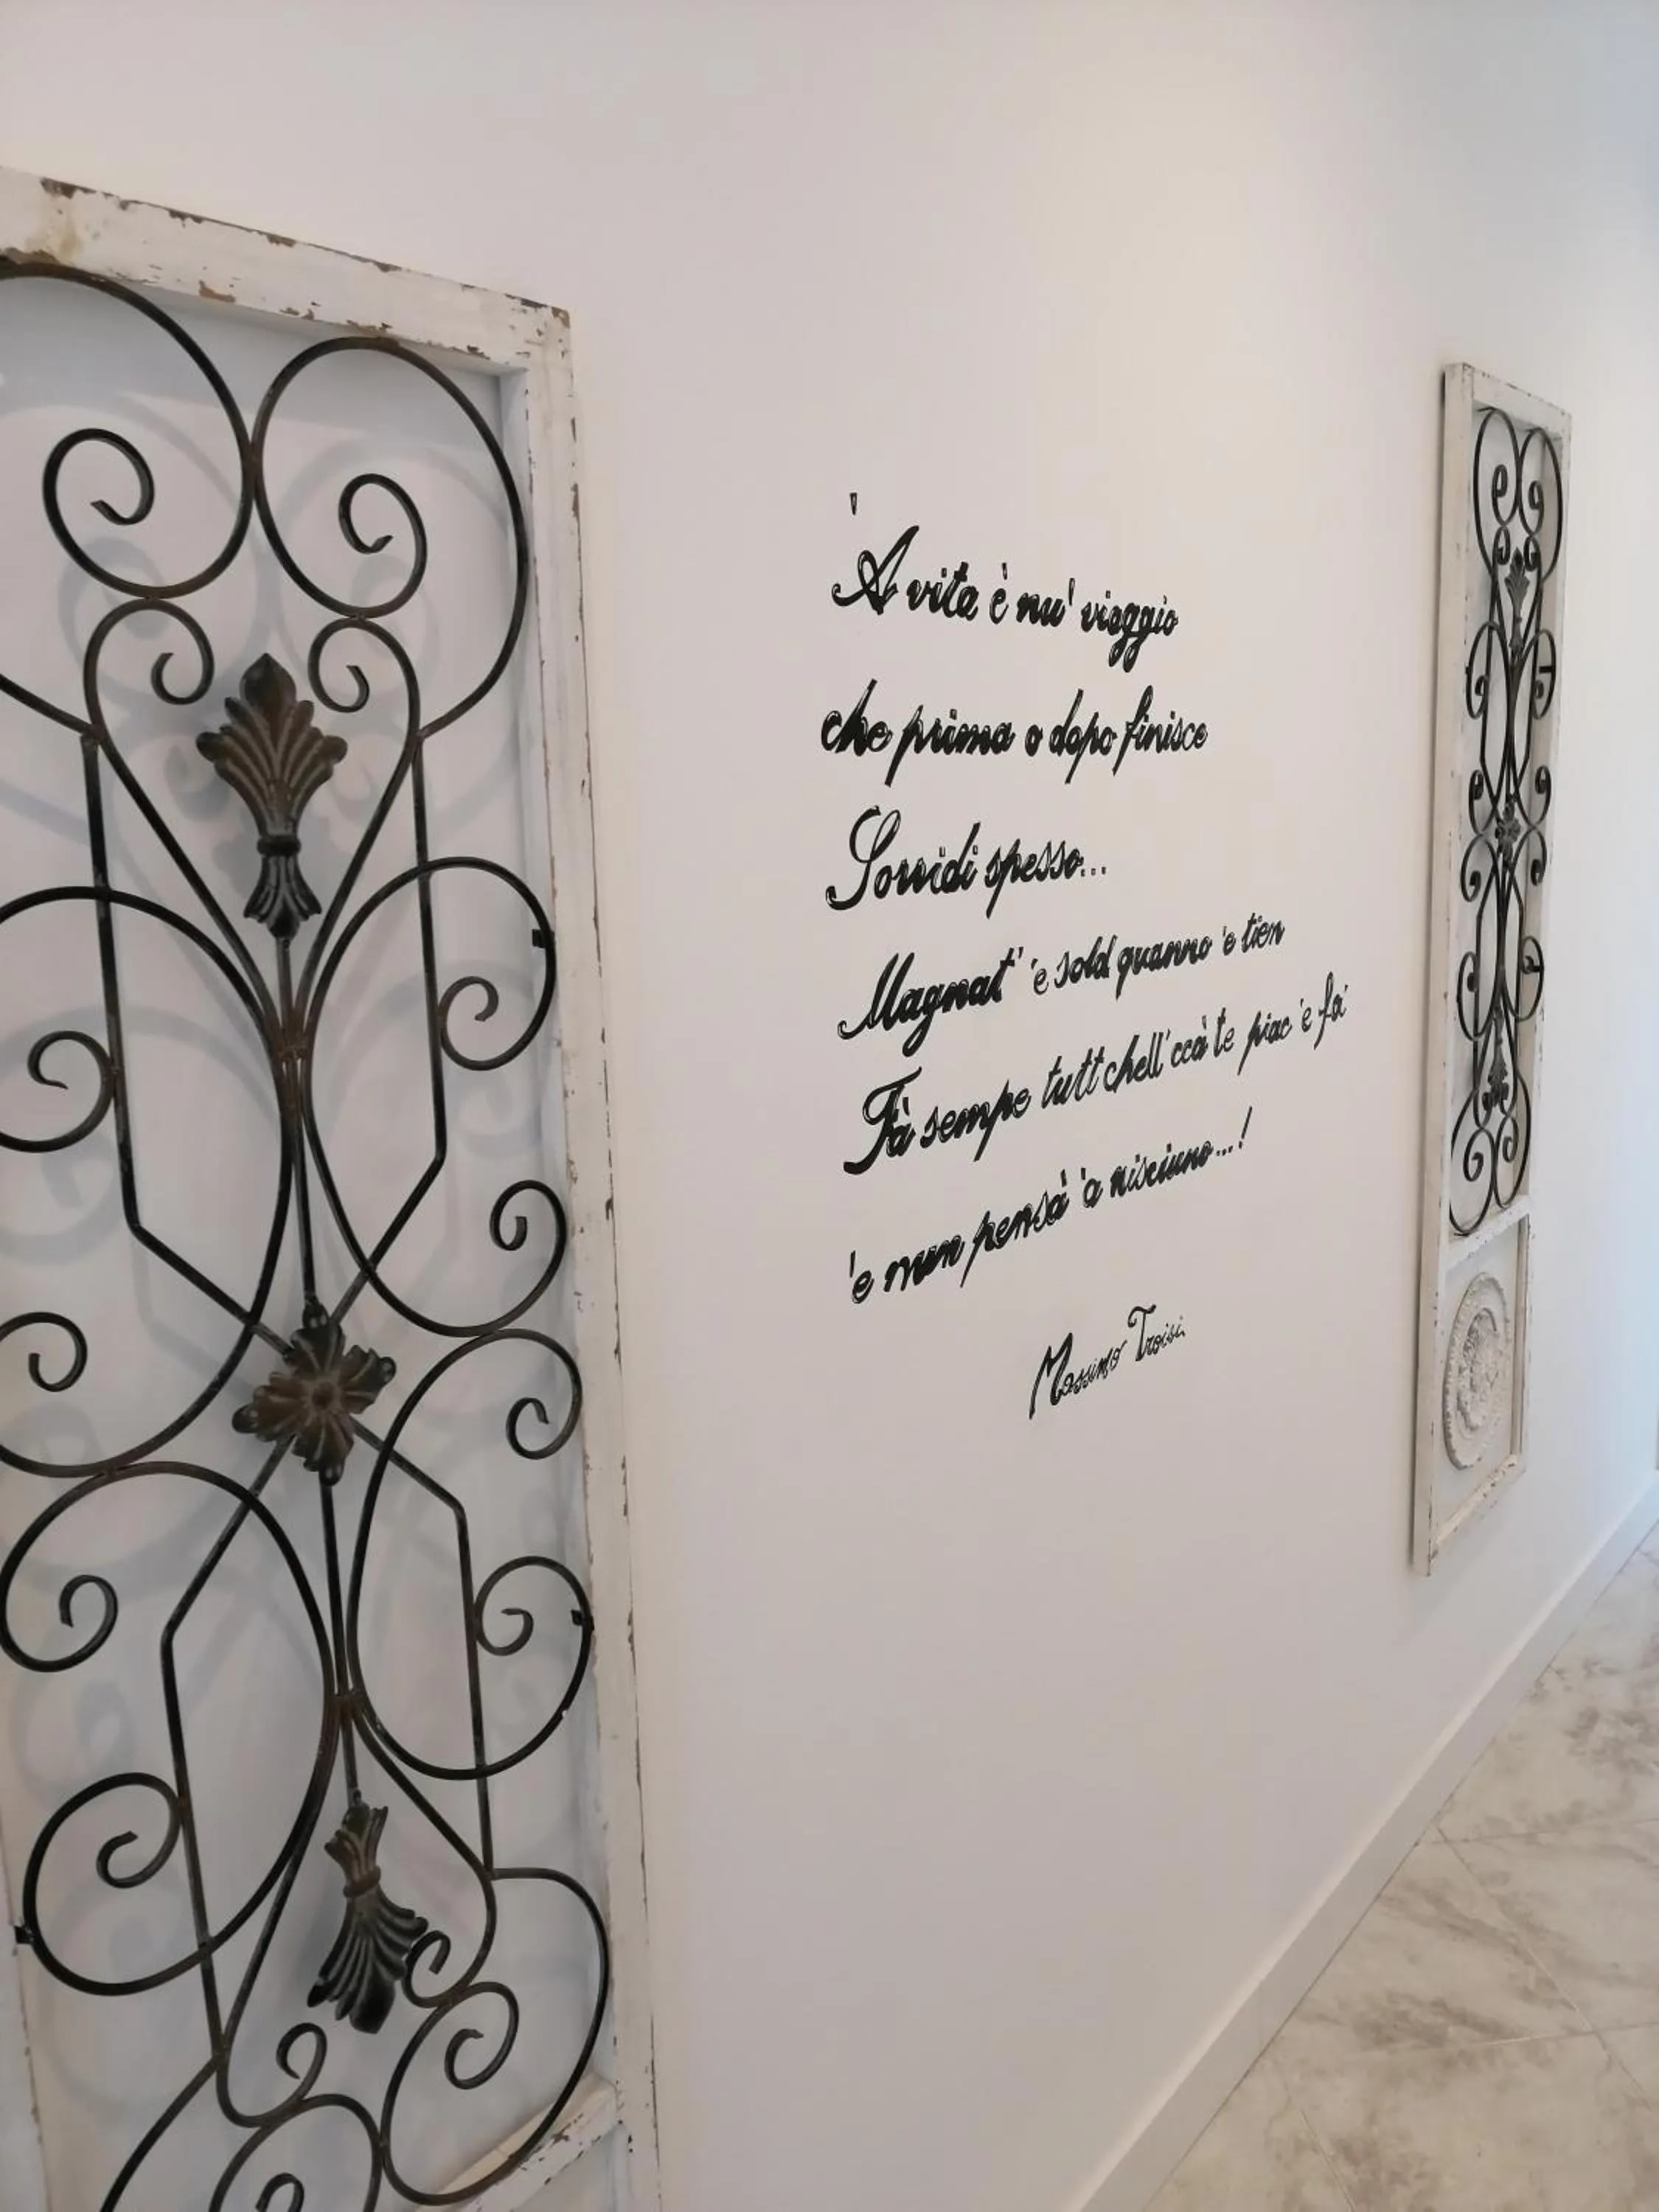 'A vita è nu' viaggio
che prima o dopo finisce
Sorridi spesso...
Magnat' 'e sold quanno 'e tien
Fà sempe tutt chell' ccà te piac 'e fa'
'e nun pensà 'a nisciuno...!
Massimo Troisi